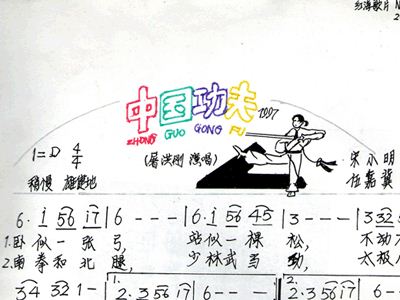 中国功夫 1997
ZHONG GUO GONG FU
1=D 4/4
(屠洪刚 演唱)
宋小明
伍嘉冀
稍慢 雄健地
6· 1 56 17 | 6 - - - | 6·1 56 45 | 3 - - - | 3 32 5
1.卧 似 一 张 弓, 站 似 一 棵 松, 不 动
2.南 拳 和 北 腿, 少 林 武 当 功, 太 极
34 32 1 - | 2·3 56 17 | 6 - - | 2·3 56 1